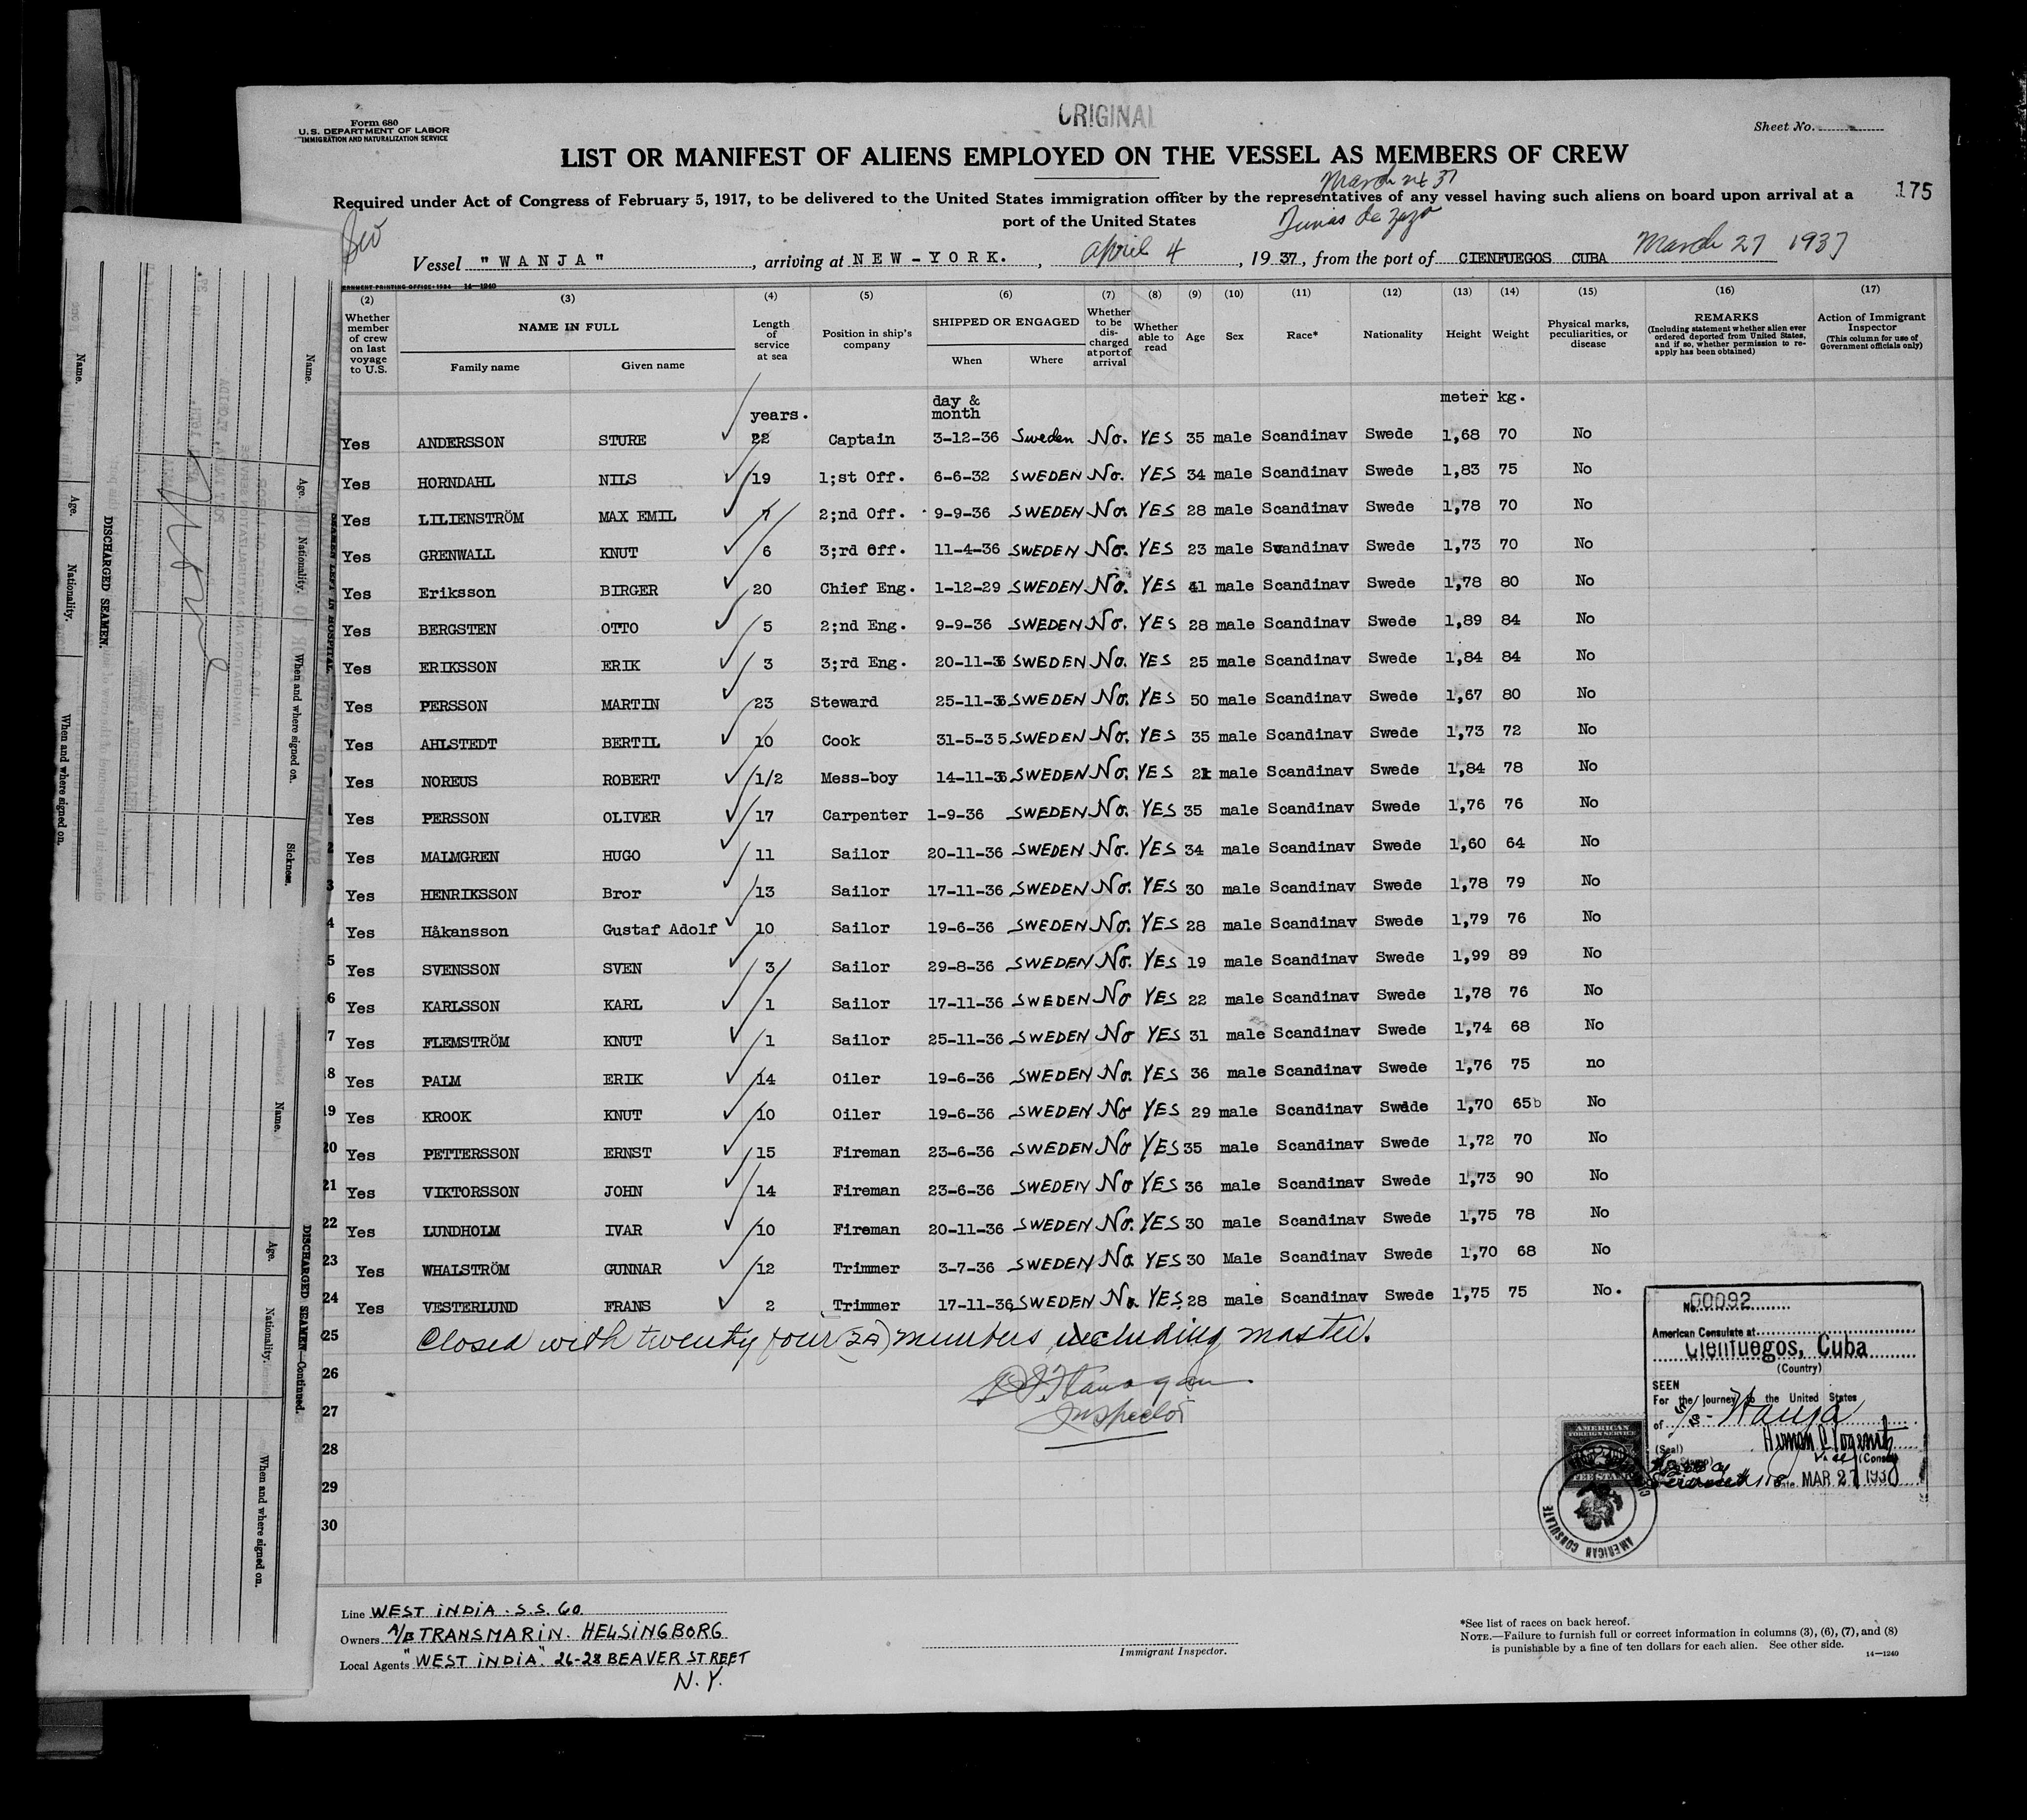 Form 680
U. S. DEPARTMENT OF LABOR
IMMIGRATION AND NATURALIZATION SERVICE
ORIGINAL
Sheet No.
LIST OR MANIFEST OF ALIENS EMPLOYED ON THE VESSEL AS MEMBERS OF CREW
Required under Act of Congress of February 5, 1917, to be delivered to the United States immigration officer by the representatives of any vessel having such aliens on board upon arrival at a
port of the United States
175
Tunas de Zaza
Vessel "WANJA", arriving at NEW-YORK., April 4, 1937, from the port of CIENFUEGOS CUBA March 27 1937
(2) (3) (4) (5) (6) (7) (8) (9) (10) (11) (12) (13) (14) (15) (16) (17)
Whether member of crew on last voyage to U.S.
NAME IN FULL
Family name Given name
Length of service at sea
Position in ship's company
SHIPPED OR ENGAGED
When Where
Whether to be discharged at port of arrival
Whether able to read
Age
Sex
Race*
Nationality
Height
Weight
Physical marks, peculiarities, or disease
REMARKS
(Including statement whether alien ever ordered deported from United States, and if so, whether permission to re-apply has been obtained)
Action of Immigrant Inspector
(This column for use of Government officials only)
years. day & month meter kg.
Yes ANDERSSON STURE 22 Captain 3-12-36 Sweden No. YES 35 male Scandinav Swede 1,68 70 No
Yes HORNDAHL NILS 19 1;st Off. 6-6-32 SWEDEN No. YES 34 male Scandinav Swede 1,83 75 No
Yes LILIENSTRÖM MAX EMIL 7 2;nd Off. 9-9-36 SWEDEN No. YES 28 male Scandinav Swede 1,78 70 No
Yes GRENWALL KNUT 6 3;rd Off. 11-4-36 SWEDEN No. YES 23 male Scandinav Swede 1,73 70 No
Yes Eriksson BIRGER 20 Chief Eng. 1-12-29 SWEDEN No. YES 41 male Scandinav Swede 1,78 80 No
Yes BERGSTEN OTTO 5 2;nd Eng. 9-9-36 SWEDEN No. YES 28 male Scandinav Swede 1,89 84 No
Yes ERIKSSON ERIK 3 3;rd Eng. 20-11-36 SWEDEN No. YES 25 male Scandinav Swede 1,84 84 No
Yes PERSSON MARTIN 23 Steward 25-11-36 SWEDEN No. YES 50 male Scandinav Swede 1,67 80 No
Yes AHLSTEDT BERTIL 10 Cook 31-5-35 SWEDEN No. YES 35 male Scandinav Swede 1,73 72 No
Yes NOREUS ROBERT 1/2 Mess-boy 14-11-36 SWEDEN No. YES 21 male Scandinav Swede 1,84 78 No
1 Yes PERSSON OLIVER 17 Carpenter 1-9-36 SWEDEN No. YES 35 male Scandinav Swede 1,76 76 No
2 Yes MALMGREN HUGO 11 Sailor 20-11-36 SWEDEN No. YES 34 male Scandinav Swede 1,60 64 No
3 Yes HENRIKSSON Bror 13 Sailor 17-11-36 SWEDEN No. YES 30 male Scandinav Swede 1,78 79 No
4 Yes Håkansson Gustaf Adolf 10 Sailor 19-6-36 SWEDEN No. YES 28 male Scandinav Swede 1,79 76 No
5 Yes SVENSSON SVEN 3 Sailor 29-8-36 SWEDEN No. YES 19 male Scandinav Swede 1,99 89 No
6 Yes KARLSSON KARL 1 Sailor 17-11-36 SWEDEN No YES 22 male Scandinav Swede 1,78 76 No
7 Yes FLEMSTRÖM KNUT 1 Sailor 25-11-36 SWEDEN No YES 31 male Scandinav Swede 1,74 68 No
18 Yes PALM ERIK 14 Oiler 19-6-36 SWEDEN No. YES 36 male Scandinav Swede 1,76 75 no
19 Yes KROOK KNUT 10 Oiler 19-6-36 SWEDEN No YES 29 male Scandinav Swede 1,70 65 No
20 Yes PETTERSSON ERNST 15 Fireman 23-6-36 SWEDEN No YES 35 male Scandinav Swede 1,72 70 No
21 Yes VIKTORSSON JOHN 14 Fireman 23-6-36 SWEDEN No YES 36 male Scandinav Swede 1,73 90 No
22 Yes LUNDHOLM IVAR 10 Fireman 20-11-36 SWEDEN No. YES 30 male Scandinav Swede 1,75 78 No
23 Yes WHALSTRÖM GUNNAR 12 Trimmer 3-7-36 SWEDEN No. YES 30 Male Scandinav Swede 1,70 68 No
24 Yes VESTERLUND FRANS 2 Trimmer 17-11-36 SWEDEN No. YES. 28 male Scandinav Swede 1,75 75 No.
25 Closed with twenty four (24) members, including master.
26
27 Inspector
28
29
30
No. 00092
American Consulate at
Cienfuegos, Cuba
(Country)
SEEN
For the journey to the United States
of S/S - Wanja
(Seal)
MAR 27 193
AMERICAN FOREIGN SERVICE
FEE STAMP
AMERICAN CONSULATE
Line WEST INDIA. S.S. Co.
Owners A/B TRANSMARIN. HELSINGBORG
Local Agents "WEST INDIA". 26-28 BEAVER STREET
N.Y.
Immigrant Inspector.
*See list of races on back hereof.
NOTE.—Failure to furnish full or correct information in columns (3), (6), (7), and (8)
is punishable by a fine of ten dollars for each alien. See other side.
14—1240
DISCHARGED SEAMEN.
Name. Age. Nationality. When and where signed on.
Name. Age. Nationality. When and where signed on. Sickness.
DISCHARGED SEAMEN—Continued.
Name. Age. Nationality. When and where signed on.
None